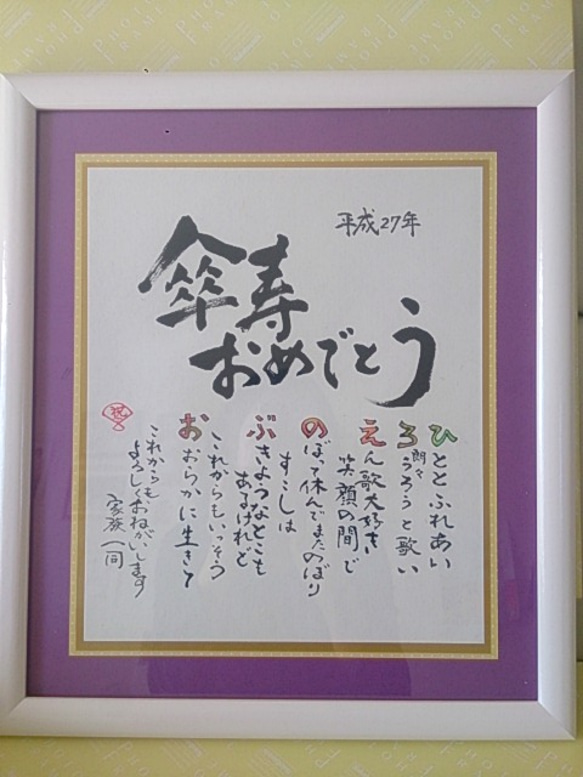 平成27年
傘寿
おめでとう
ひととふれあい
ろうろうと歌い
朗々
えん歌大好き
笑顔の間で
のぼって休んでまたのぼり
すこしは
ぶきようなとこも
あるけれど
これからもいっそう
おおらかに生きて
これからも
よろしくおねがいします
家族一同
祝
PHOTO FRAME